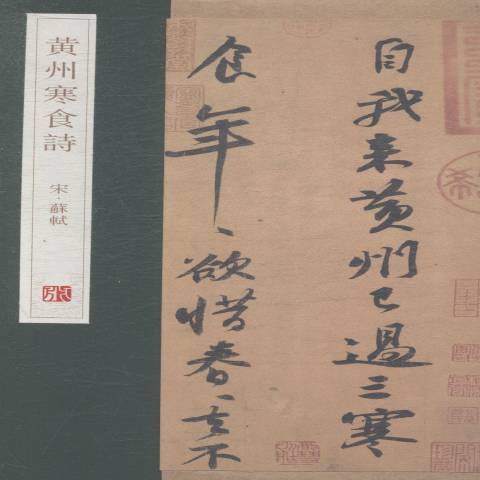 自我来黄州已過三寒
食年〻欲惜春〻去不
黄州寒食詩
宋·蘇軾